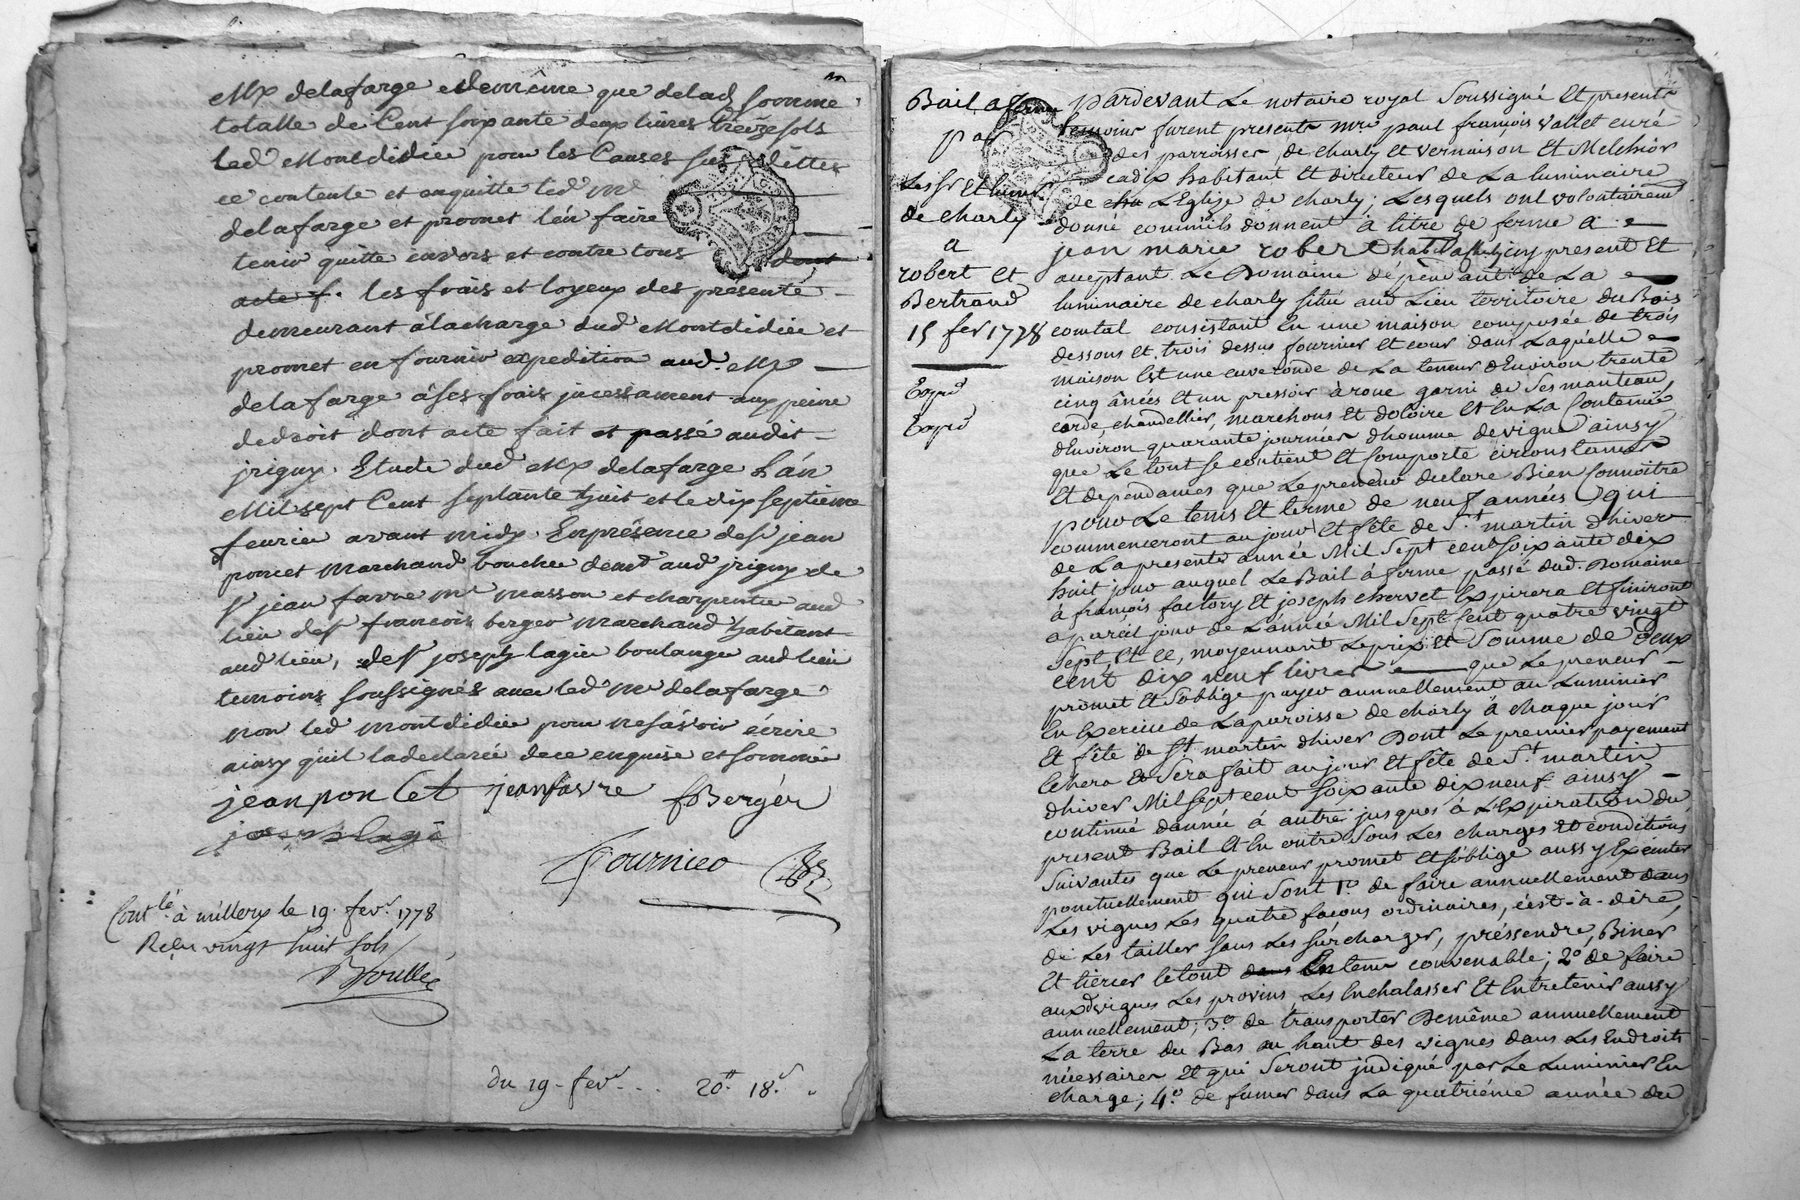 Mr delafarge et demême que delad. somme
totalle de Cent soixante deux livres treize sols
led Montdidiée pour les Causes sus dittes
ce contente et acquitte led Mr
delafarge et promet l'en faire
tenir quitte envers et contre tous dont
acte f. les frais et loyeux des presente
demeurant à la charge dud Montdidiée et
promet en fournir expedition aud. Mr
delafarge à ses frais
dedroit dont acte fait et passé audit
jrigny. Etude dud Mr delafarge L'an
Mil sept Cent septante huit et le dix septieme
fevrier avant midy. En présence de sr jean
poncet marchand boucher demt aud jrigny de
sr jean favre me masson et charpentier aud
lieu de sr françois berger marchand habitant
aud lieu, de sr joseph lagier boulanger aud lieu
temoins soussignés avec led Mr delafarge
non led montdidiée pour ne sávoir écrire
ainsy qu'il la declarée de ce enquise et sommée
jean ponCet jean favre fBerger
Fournier
Contlé à millery le 19. fevr. 1778
Reçu vingt huit sols
du 19 - fevr... 20# 18s
Bail a ferme
par
Les sr
de charly
a
robert et
Bertrand
15 fev 1778
Expd
Expd
pardevant Le notaire royal Soussigné Et presents
temoins furent presents mre paul françois vallet curé
des parroisses de charly et vernaison Et Melchior
cadix habitant Et directeur de La luminaire
de L'Eglise de charly; Lesquels ont volontairemt
donné comm'ils donnent à titre de ferme a
jean marie robert present Et
acceptant Le Domaine dépendant de La
luminaire de charly situé aud Lieu territoire du Bois
comtal consistant En une maison composée de trois
dessous Et trois dessus fournier Et cour dans Laquelle
maison Est une cuve ronde de La teneur d'Environ trente
cinq ânées Et un pressoir à roue garni de Ses manteau,
corde, chandellier, marchons Et doloire Et En La Contenüe
d'Environ quarante journées d'homme de vigne ainsy
que Le tout Se contient Et Comporte circonstances
Et dependances que Le preneur declare Bien Connoître
pour Le tems Et terme de neuf années qui
commenceront au jour Et fête de St. martin d'hiver
de La presente année Mil Sept cent soixante dix
huit jour auquel Le Bail à ferme passé dud. Domaine
à françois factory Et joseph chervet Expirera Et finiront
a pareil jour de L'année Mil Sept Cent quatre vingt
Sept, Et ce, moyennant Le prix Et Somme de Deux
cent dix neuf livres que Le preneur
promet Et S'oblige payer annuellement au Luminier
En Exercice de La paroisse de charly à chaque jour
Et fête de St martin d'hiver Dont Le premier payement
Echera Et Sera fait au jour Et fête de St. martin
d'hiver Mil Sept cent Soixante dix neuf ainsy
continué d'année à autre jusques à L'Expiration du
present Bail Et En outre Sous Les charges Et conditions
Suivantes que Le preneur promet Et S'oblige aussy Executer
ponctuellement qui Sont 1.° de faire annuellement dans
Les vignes Les quatre façons ordinaires, c'est-à-dire,
de Les tailler Sans Les surcharger, préssendre, Biner
Et tiercer le tout dans En tems convenable; 2° de faire
auxd vignes Les provins Les Enchalasser Et Entretenir aussy
annuellement; 3.° de transporter De même annuellement
La terre du Bas au haut des vignes dans Les Endroits
nécessaires Et qui Seront jndiqué par Le Luminier En
charge; 4.° de fumer dans La quatriéme année du